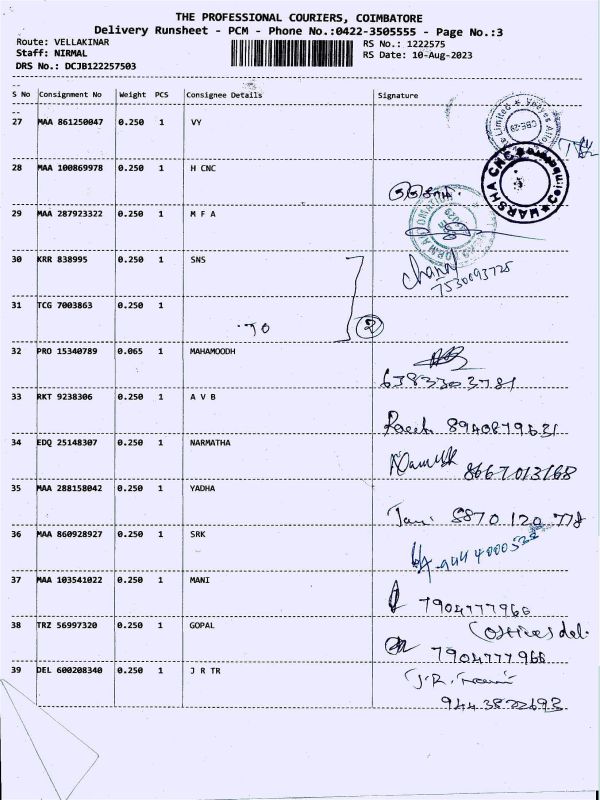 THE PROFESSIONAL COURIERS, COIMBATORE
Delivery Runsheet - PCM - Phone No.:0422-3505555 - Page No.:3
Route: VELLAKINAR RS No.: 1222575
Staff: NIRMAL RS Date: 10-Aug-2023
DRS No.: DCJB122257503
S No Consignment No Weight PCS Consignee Details Signature
27 MAA 861250047 0.250 1 VY
28 MAA 100869978 0.250 1 H CNC
HARSHA CNC
29 MAA 287923322 0.250 1 M F A
30 KRR 838995 0.250 1 SNS
7530093725
31 TCG 7003863 0.250 1
TO 2
32 PRO 15340789 0.065 1 MAHAMOODH
6383303781
33 RKT 9238306 0.250 1 A V B
8940879631
34 EDQ 25148307 0.250 1 NARMATHA
8667013168
35 MAA 288158042 0.250 1 YADHA
8870 120 778
36 MAA 860928927 0.250 1 SRK
37 MAA 103541022 0.250 1 MANI
7904777966
38 TRZ 56997320 0.250 1 GOPAL
7904777966
39 DEL 600208340 0.250 1 J R TR
9443822693